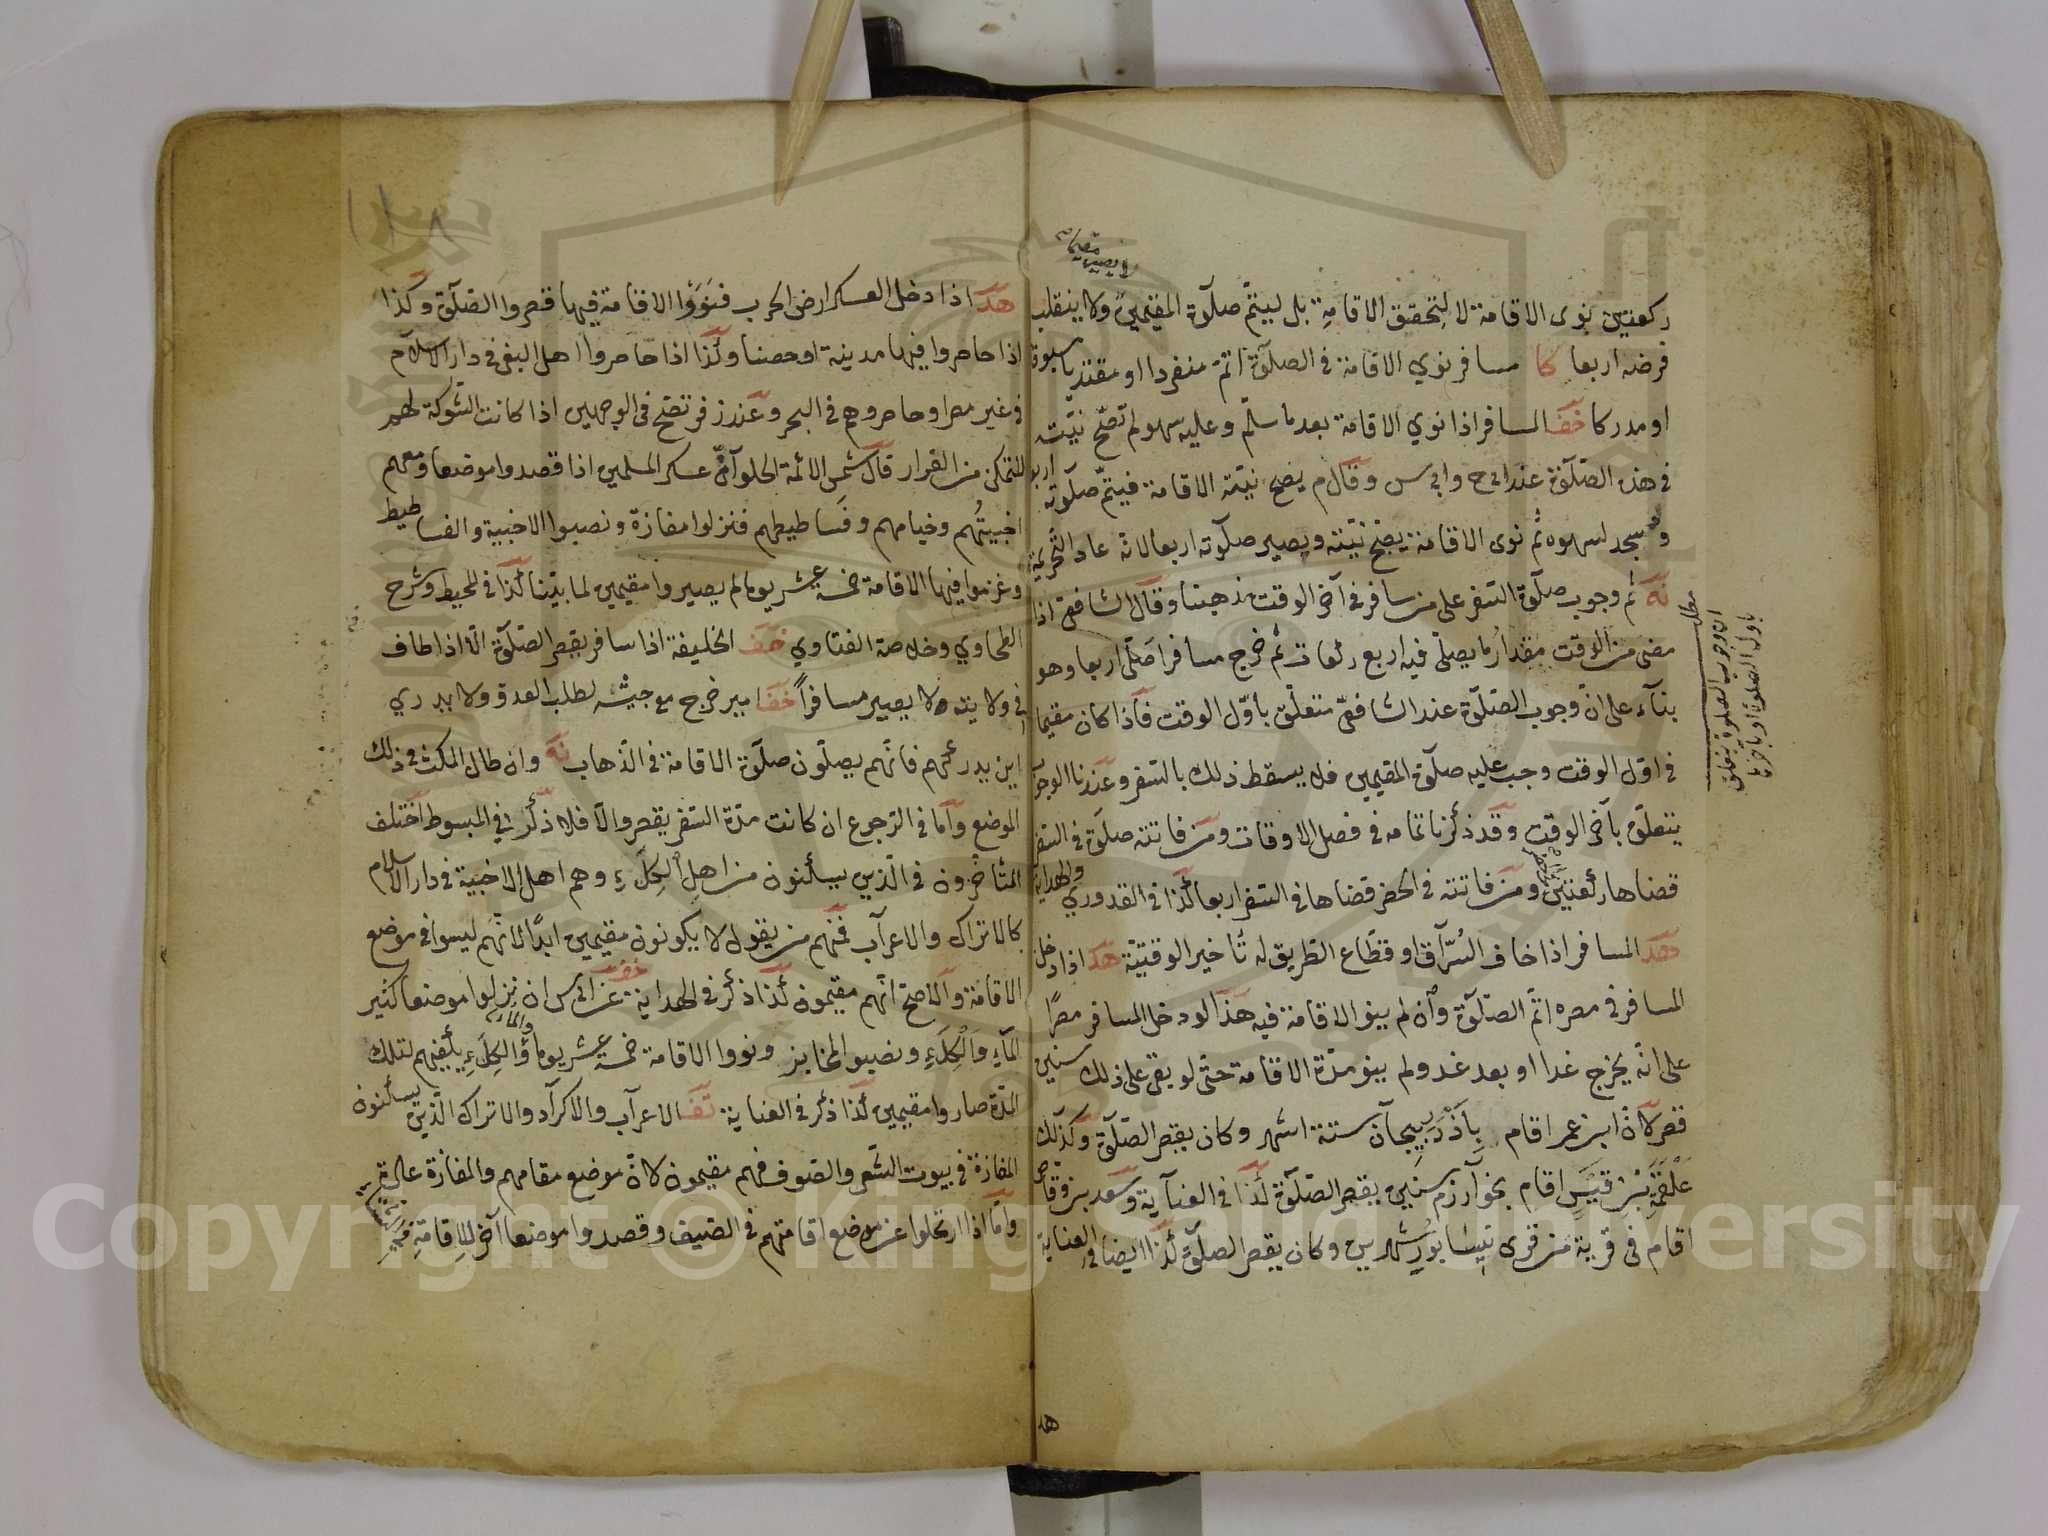 لا يصير مقيما
ركعتين نوى الاقامة لا لتحقق الاقامة بل ليتم صلوة المقيمين ولا ينقلب
فرضه اربعا كا مسافر نوي الاقامة في الصلوة اتم منفردا او مقتديا مسبوقا
او مدركا خف المسافر اذا نوي الاقامة بعد ما سلم وعليه سهو لم تصح نيته
في هذه الصلوة عند ابي ح وابي س وقال م يصح نيته الاقامة فيتم صلوته اربعا
ولو سجد لسهوه ثم نوى الاقامة يصح نيته ويصير صلوته اربعا لانه عاد التحريمة
نه ثم وجوب صلوة السفر على من سافر في آخر الوقت مذهبنا وقال الشافعي اذا
مضى من الوقت مقدار ما يصلي فيه اربع ركعات ثم خرج مسافرا صلى اربعا وهو
بناء على ان وجوب الصلوة عند الشافعي متعلق باول الوقت فاذا كان مقيما
في اول الوقت وجب عليه صلوة المقيمين فلا يسقط ذلك بالسفر وعندنا الوجوب
يتعلق بآخر الوقت وقد ذكرنا تمامه في فصل الاوقات ومن فاتته صلوة في السفر
قضاها ركعتين ومن فاتته في الحضر قضاها في السفر اربعا كذا في القدوري والهداية
هد المسافر اذا خاف السراق او قطاع الطريق له تأخير الوقتية هد اذا دخل
المسافر في مصره اتم الصلوة وان لم ينو الاقامة فيه هذا لو دخل المسافر مصرا
على انه يخرج غدا او بعد غد ولم ينو مدة الاقامة حتى لو بقى على ذلك سنين
قصر لان ابن عمر اقام باذربيجان ستة اشهر وكان يقصر الصلوة وكذلك
علقمة بن قيس اقام بخوارزم سنين يقصر الصلوة كذا في العناية وسعد بن وقاص
اقام في قرية من قرى نيسابور شهرين وكان يقصر الصلوة كذا ايضا في العناية
مطلب
ان وجوب الصلوة يتعلق
باول الصلوة او بآخرها
هد
هد اذا دخل العسكر ارض الحرب فنووا الاقامة فيها قصروا الصلوة وكذا
اذا حاصروا فيها مدينة او حصنا وكذا اذا حاصروا اهل البغى في دار الاسلام
في غير مصر او حاصروهم في البحر وعند زفر تصح في الوجهين اذا كانت الشوكة لهم
للتمكن من القرار قال شمس الائمة الحلواني عسكر المسلمين اذا قصدوا موضعا ومعهم
اخبيتهم وخيامهم وفساطيطهم فنزلوا مفازة ونصبوا الاخبية والفساطيط
وعزموا فيها الاقامة خمسة عشر يوما لم يصيروا مقيمين لما بينا كذا في المحيط وشرح
الطحاوي وخلاصة الفتاوي خف الخليفة اذا سافر يقصر الصلوة الا اذا طاف
في ولايته لا يصير مسافرا خف امير خرج مع جيشه لطلب العدو ولا يدري
اين يدركهم فانهم يصلون صلوة الاقامة في الذهاب نه وان طال المكث في ذلك
الموضع واما في الرجوع ان كانت مدة السفر يقصر والا فلا ذكر في المبسوط اختلف
المتأخرون في الذين يسكنون من اهل الكلاء وهم اهل الاخبية في دار الاسلام
كالاتراك والاعراب فمنهم من يقول لا يكونون مقيمين ابدا لانهم ليسوا في موضع
الاقامة والاصح انهم مقيمون كذا ذكر في الهداية خف عن ابي س ان نزلوا موضعا كثير
الماء والكلاء ونصبوا المخابز ونووا الاقامة خمسة عشر يوما والماء والكلاء يكفيهم لتلك
المدة صاروا مقيمين كذا ذكر في العناية تف الاعراب والاكراد والاتراك الذين يسكنون
المفازة في بيوت الشعر والصوف فهم مقيمون لان موضع مقامهم والمفازة عادة
واما اذا ارتحلوا عن موضع اقامتهم في الصيف وقصدوا موضعا آخر للاقامة في الشتاء
Copyright © King Saud University